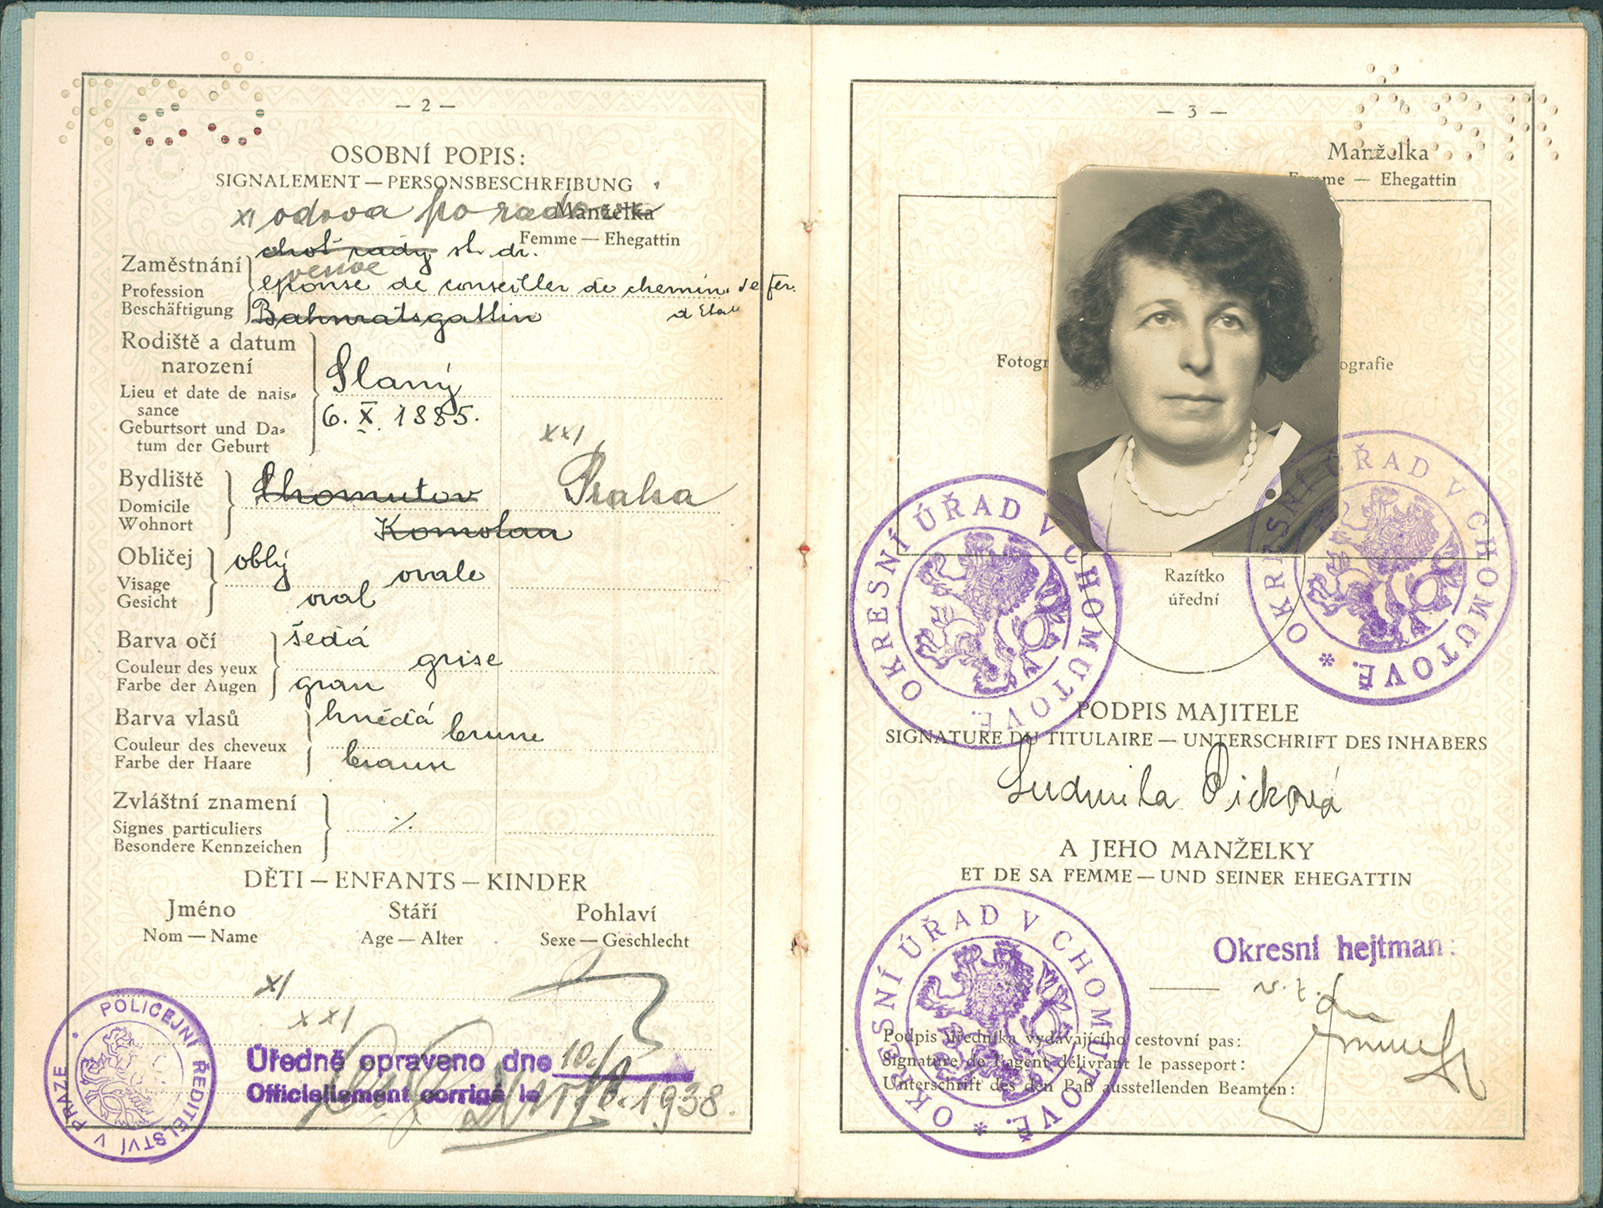 — 2 —
OSOBNÍ POPIS:
SIGNALEMENT — PERSONSBESCHREIBUNG
Manželka
Femme — Ehegattin
choť rady st. dr.
Zaměstnání
veuve
Profession
épouse de conseiller de chemin de fer
Beschäftigung
Bahnratsgattin
d'Etat
Rodiště a datum
narození
Slaný
Lieu et date de nais-
sance
6. X. 1885.
Geburtsort und Da-
tum der Geburt
xx/
Bydliště
Chomutov
Praha
Domicile
Wohnort
Komotau
Obličej
oblý
ovale
Visage
Gesicht
oval
Barva očí
šedá
Couleur des yeux
grise
Farbe der Augen
grau
Barva vlasů
hnědá
brune
Couleur des cheveux
Farbe der Haare
braun
Zvláštní znamení
Signes particuliers
·/.
Besondere Kennzeichen
DĚTI — ENFANTS — KINDER
Jméno Stáří Pohlaví
Nom — Name Age — Alter Sexe — Geschlecht
x/
xx/
POLICEJNÍ ŘEDITELSTVÍ V PRAZE
Úředně opraveno dne
Officiellement corrigé le
1938.
— 3 —
Manželka
Femme — Ehegattin
Fotogr
ografie
OKRESNÍ ÚŘAD V CHOMUTOVĚ.
OKRESNÍ ÚŘAD V CHOMUTOVĚ.
Razítko
úřední
PODPIS MAJITELE
SIGNATURE DU TITULAIRE — UNTERSCHRIFT DES INHABERS
Ludmila Picková
A JEHO MANŽELKY
ET DE SA FEMME — UND SEINER EHEGATTIN
OKRESNÍ ÚŘAD V CHOMUTOVĚ.
Okresní hejtman:
v. z.
Podpis úředníka vydávajícího cestovní pas:
Signature de l'agent délivrant le passeport:
Unterschrift des den Paß ausstellenden Beamten: